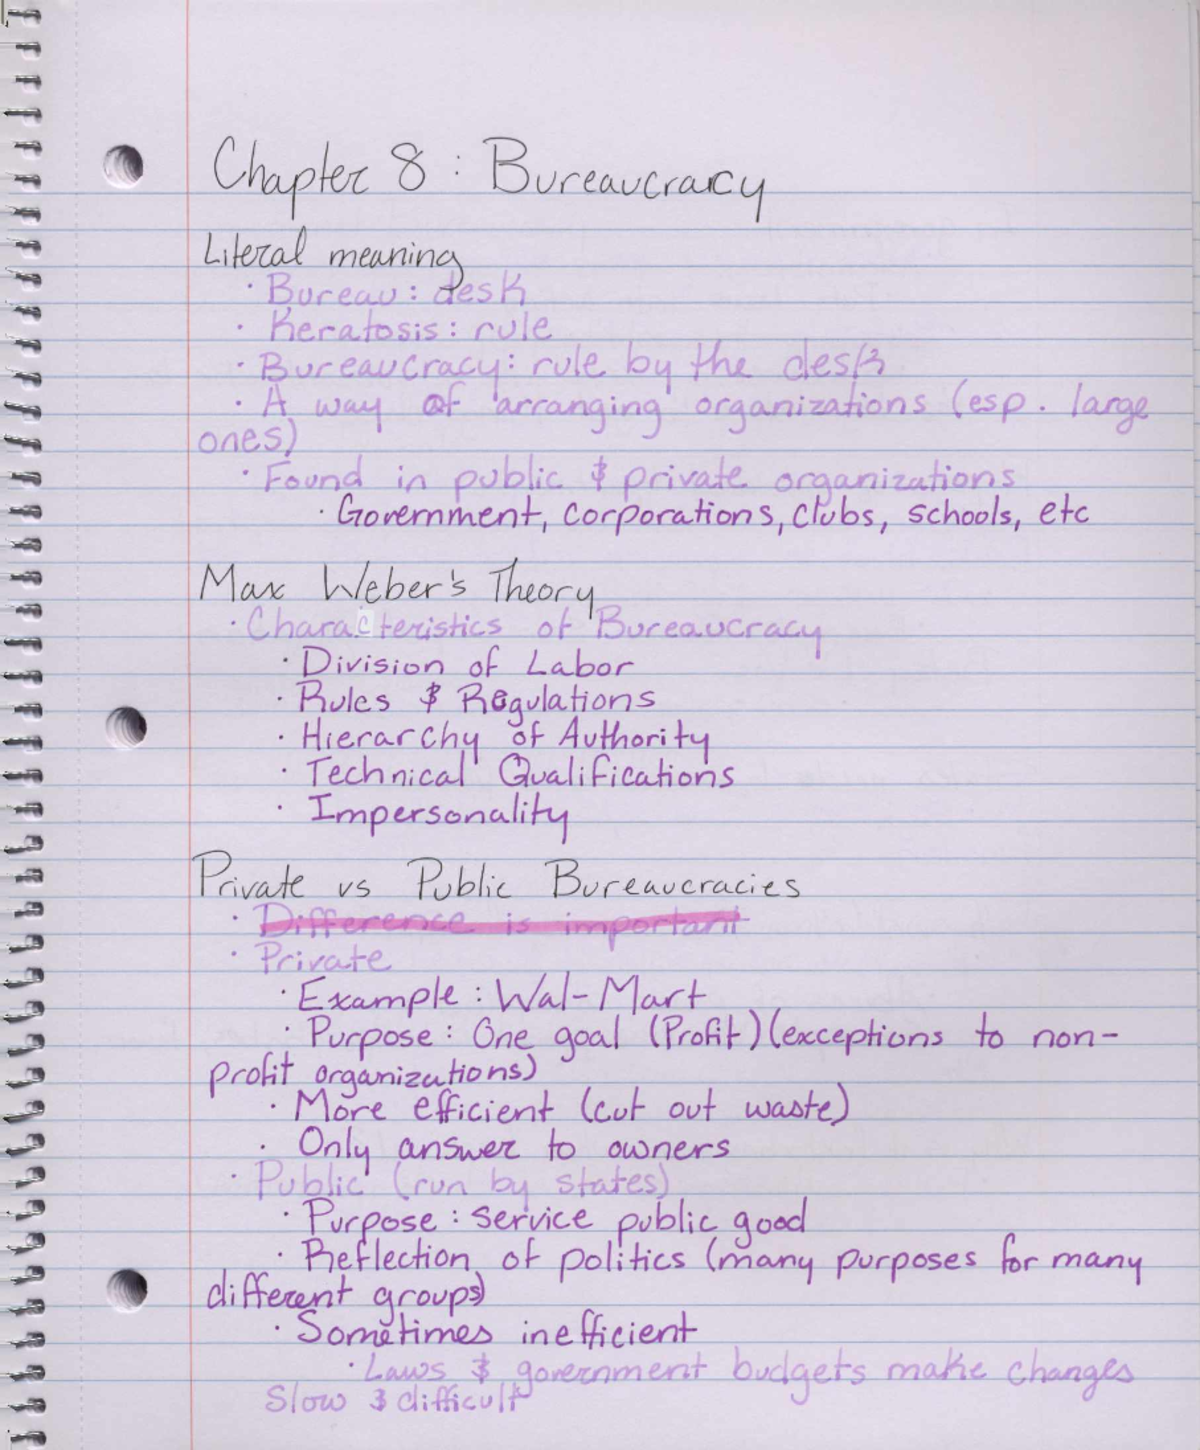 Chapter 8 : Bureaucracy
Literal meaning
· Bureau : desk
· Keratosis : rule
· Bureaucracy : rule by the desk
· A way of arranging organizations (esp. large
ones)
· Found in public & private organizations
· Government, corporations, clubs, schools, etc
Max Weber's Theory
· Characteristics of Bureaucracy
· Division of Labor
· Rules & Regulations
· Hierarchy of Authority
· Technical Qualifications
· Impersonality
Private vs Public Bureaucracies
· Difference is important
· Private
· Example : Wal-Mart
· Purpose : One goal (Profit) (exceptions to non-
profit organizations)
· More efficient (cut out waste)
· Only answer to owners
· Public (run by states)
· Purpose : service public good
· Reflection of politics (many purposes for many
different groups)
· Sometimes inefficient
· Laws & government budgets make changes
Slow & difficult